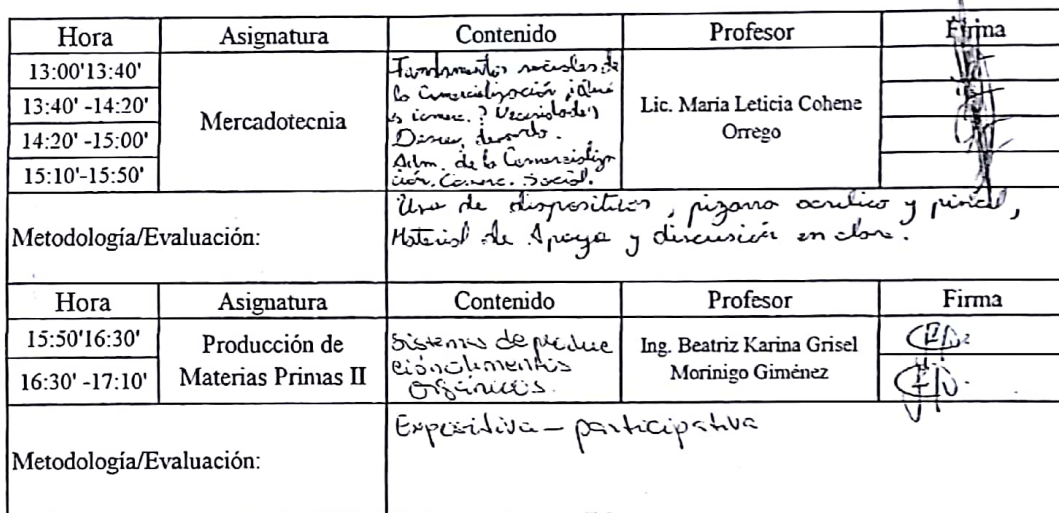 Hora Asignatura Contenido Profesor Firma
13:00'13:40'
13:40' -14:20'
14:20' -15:00'
15:10'-15:50'
Mercadotecnia
Fundamentos sociales de
la Comercialización, ¿Qué
es comerc.? Necesidades
Deseos, demanda.
Adm. de la Comercializa
ción. Comerc. Social.
Lic. Maria Leticia Cohene
Orrego
Metodología/Evaluación:
Uso de dispositivos, pizarra acrílico y pincel,
Material de Apoyo y discusión en clase.
Hora Asignatura Contenido Profesor Firma
15:50'16:30'
16:30' -17:10'
Producción de
Materias Primas II
Sistemas de produc
ción alimentos
Orgánicos.
Ing. Beatriz Karina Grisel
Morinigo Giménez
Metodología/Evaluación:
Expositiva - participativa